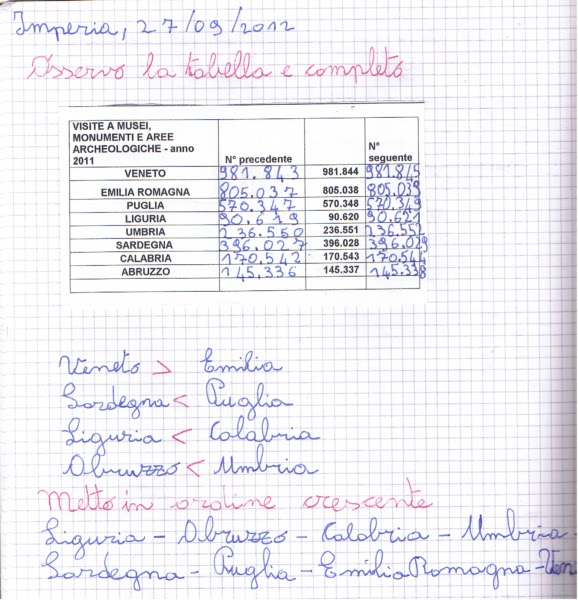 Imperia, 27/09/2012
Osservo la tabella e completo
VISITE A MUSEI, MONUMENTI E AREE ARCHEOLOGICHE - anno 2011 N° precedente N° seguente
VENETO 981.843 981.844 981.845
EMILIA ROMAGNA 805.037 805.038 805.039
PUGLIA 570.347 570.348 570.349
LIGURIA 90.619 90.620 90.621
UMBRIA 236.550 236.551 236.552
SARDEGNA 396.027 396.028 396.029
CALABRIA 170.542 170.543 170.544
ABRUZZO 145.336 145.337 145.338
Veneto > Emilia
Sardegna < Puglia
Liguria < Calabria
Abruzzo < Umbria
Metto in ordine crescente
Liguria - Abruzzo - Calabria - Umbria -
Sardegna - Puglia - Emilia Romagna - Ven